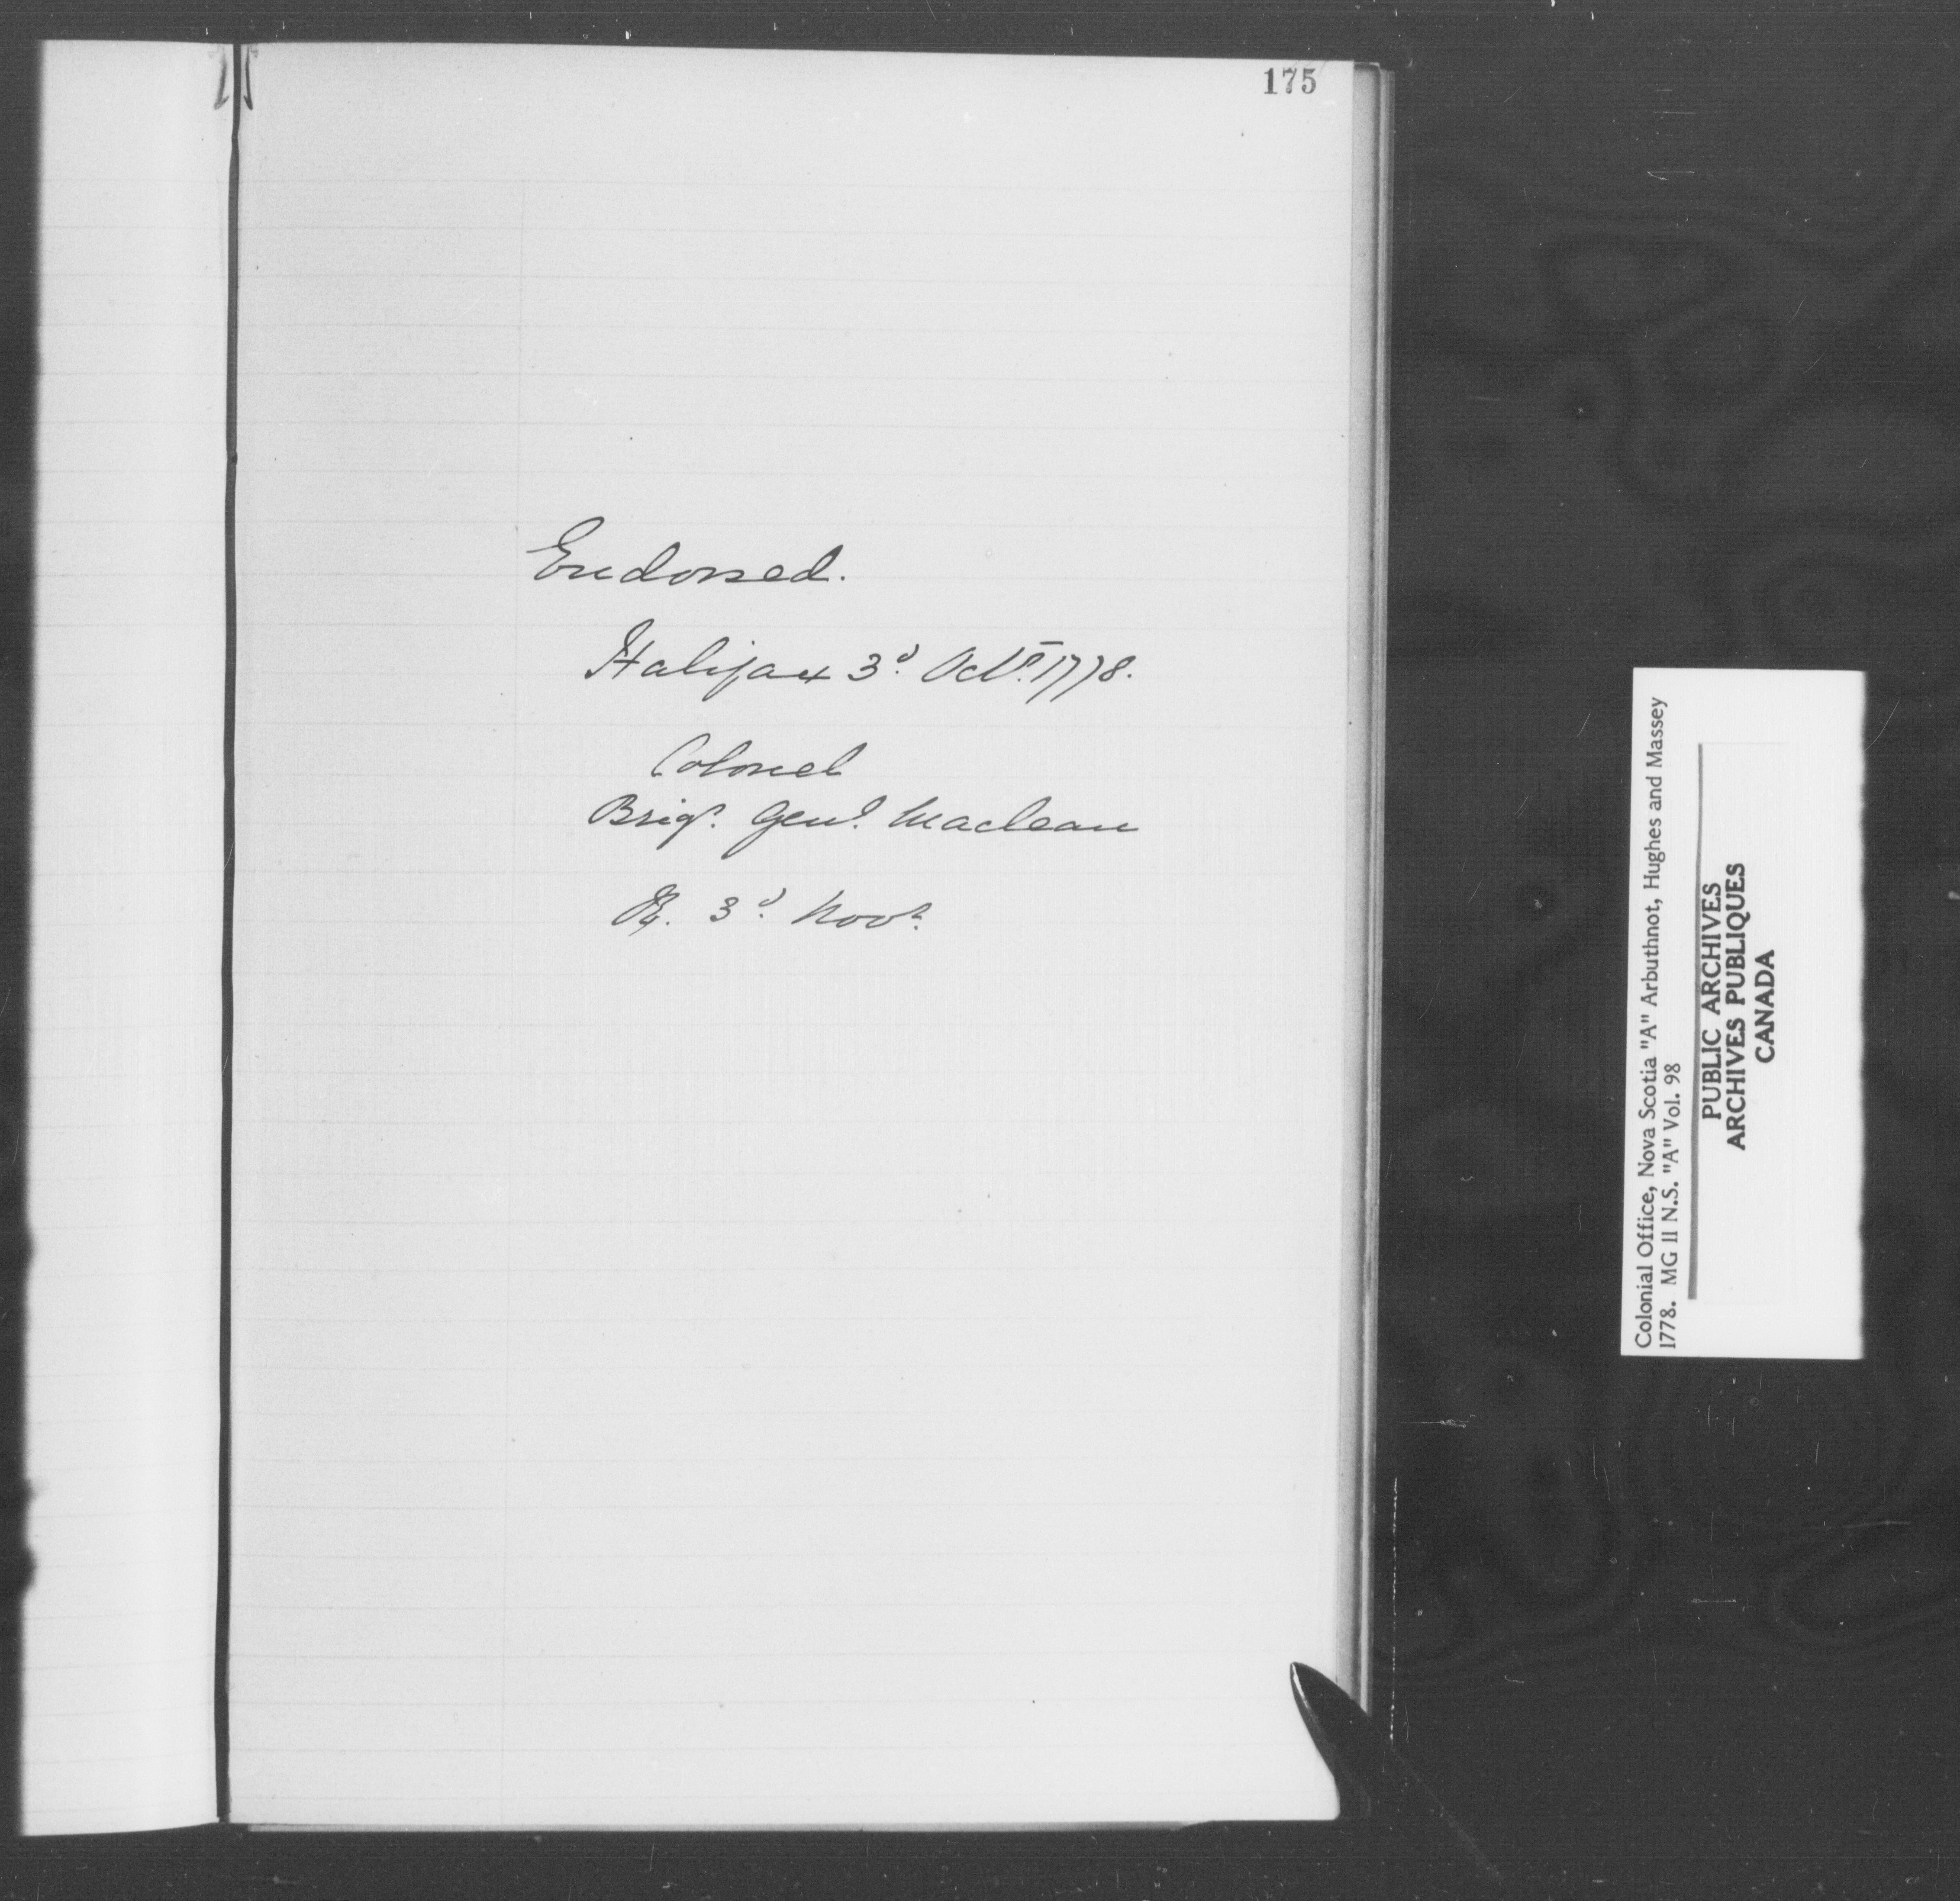 175
Endorsed.
Halifax 3d. Octr. 1778.
Colonel
Brigr. Genl. Maclean
R. 3d. Novr.
Colonial Office, Nova Scotia "A" Arbuthnot, Hughes and Massey
1778. MG 11 N.S. "A" Vol. 98
PUBLIC ARCHIVES
ARCHIVES PUBLIQUES
CANADA